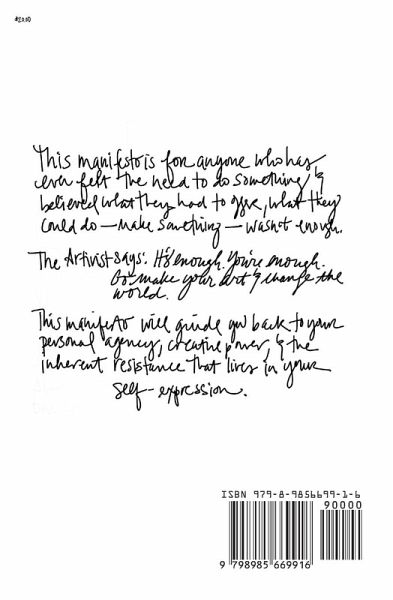 $20.00
This manifesto is for anyone who has
ever felt the need to do something &
believed what they had to give, what they
could do — make something — wasn't enough.
The Artivist says: It's enough. You're enough.
Go make your art & change the
world.
This manifesto will guide you back to your
personal agency, creative power, & the
inherent resistance that lives in your
self-expression.
ISBN 979-8-9856699-1-6
90000
9 798985 669916